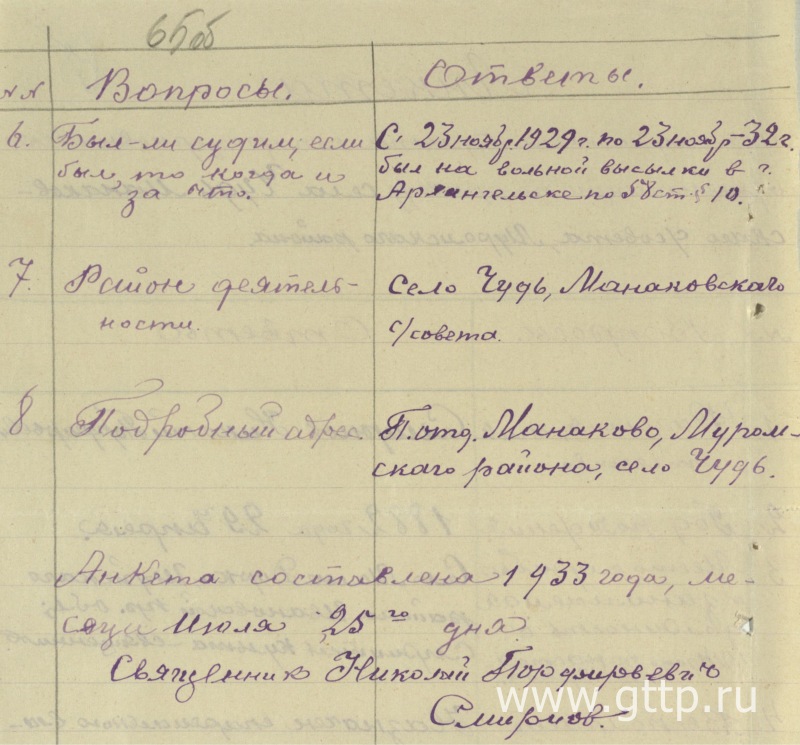 65об
№№ Вопросы. Ответы.
6. Был-ли судим, если
был то когда и
за что.
С 23 ноябр. 1929 г. по 23 ноябр-32 г.
был на вольной высылки в г.
Архангельске по 58 ст. § 10.
7. Район деятель-
ности.
Село Чудь, Манаковскаго
с/совета.
8 Подробный адрес.
П.отд. Манаково, Муром-
скаго района, село Чудь.
Анкета составлена 1933 года, ме-
сяца Июля 25 го дня.
Священник Николай Порфирьевичъ
Смирнов.
www.gttp.ru